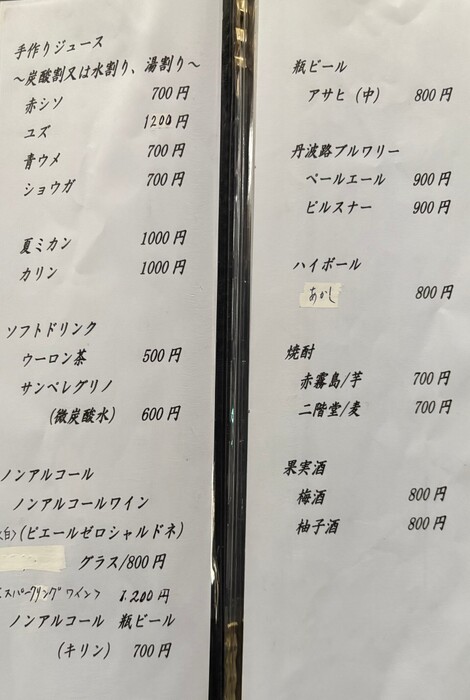 手作りジュース
～炭酸割又は水割り、湯割り～
赤シソ 700円
ユズ 1200円
青ウメ 700円
ショウガ 700円
夏ミカン 1000円
カリン 1000円
ソフトドリンク
ウーロン茶 500円
サンペレグリノ
(微炭酸水) 600円
ノンアルコール
ノンアルコールワイン
白〉(ピエールゼロシャルドネ)
グラス/800円
スパークリングワイン〉 1.200円
ノンアルコール 瓶ビール
(キリン) 700円
瓶ビール
アサヒ (中) 800円
丹波路ブルワリー
ペールエール 900円
ピルスナー 900円
ハイボール
あかし 800円
焼酎
赤霧島/芋 700円
二階堂/麦 700円
果実酒
梅酒 800円
柚子酒 800円